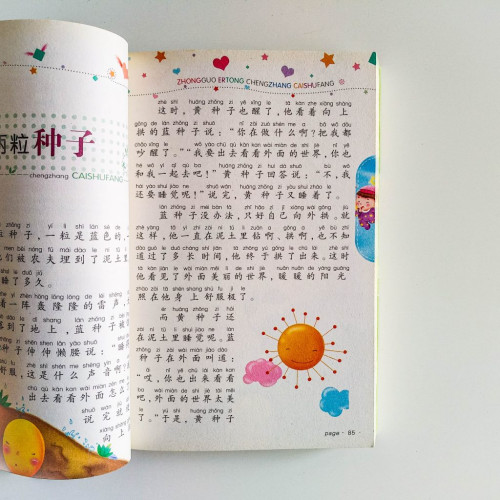 两粒种子
chengzhang CAISHUFANG
蓝种子，一粒是蓝色的，
们被农夫埋到了泥土里
睡了多久。
一阵轰隆隆的雷声，
落到了地上，蓝种子被
种子伸伸懒腰说：
舒服，这是什么声音啊
出去看看外面的世界
说完就
向上
ZHONGGUO ERTONG CHENGZHANG CAISHUFANG
zhè shí huáng zhǒng zi yě xǐng le tā kàn zhe xiàng shàng
这时，黄种子也醒了，他看着向上
gǒng de lán zhǒng zi shuō nǐ zài zuò shén me a bǎ wǒ dōu
拱的蓝种子说：“你在做什么啊？把我都
chǎo xǐng le wǒ yào chū qù kàn kan wài miàn de shì jiè nǐ yě
吵醒了。”“我要出去看看外面的世界，你也
hé wǒ yì qǐ qù ba huáng zhǒng zi huí dá shuō bù wǒ
和我一起去吧！”黄种子回答说：“不，我
hái yào shuì jiào ne shuō wán huáng zhǒng zi yòu shuì zháo le
还要睡觉呢！”说完，黄种子又睡着了。
lán zhǒng zi méi bàn fǎ zhǐ hǎo zì jǐ xiàng wài gǒng jiù
蓝种子没办法，只好自己向外拱。就
zhè yàng tā yì zhí zài ní tǔ li zuān a gǒng a yě bù zhī
这样，他一直在泥土里钻啊、拱啊，也不知
dào guò le duō cháng shí jiān tā zhōng yú gǒng le chū lái zhè shí
通过了多长时间，他终于拱了出来，这时
tā kàn jiàn le wài miàn měi lì de shì jiè nuǎn nuǎn de yáng guāng
他看见了外面美丽的世界，暖暖的阳光
zhào zài tā shēn shang shū fu jí le
照在他身上舒服极了。
ér huáng zhǒng zi hái
而黄种子还
zài ní tǔ li shuì jiào ne lán
在泥土里睡觉呢。蓝
zhǒng zi zài wài miàn jiào dào
种子在外面叫道：
āi nǐ yě chū lái kàn kan
“哎，你也出来看看
ba wài miàn de shì jiè tài měi
吧，外面的世界太美
le yú shì huáng zhǒng zi
了。”于是，黄种子
page · 65 ·